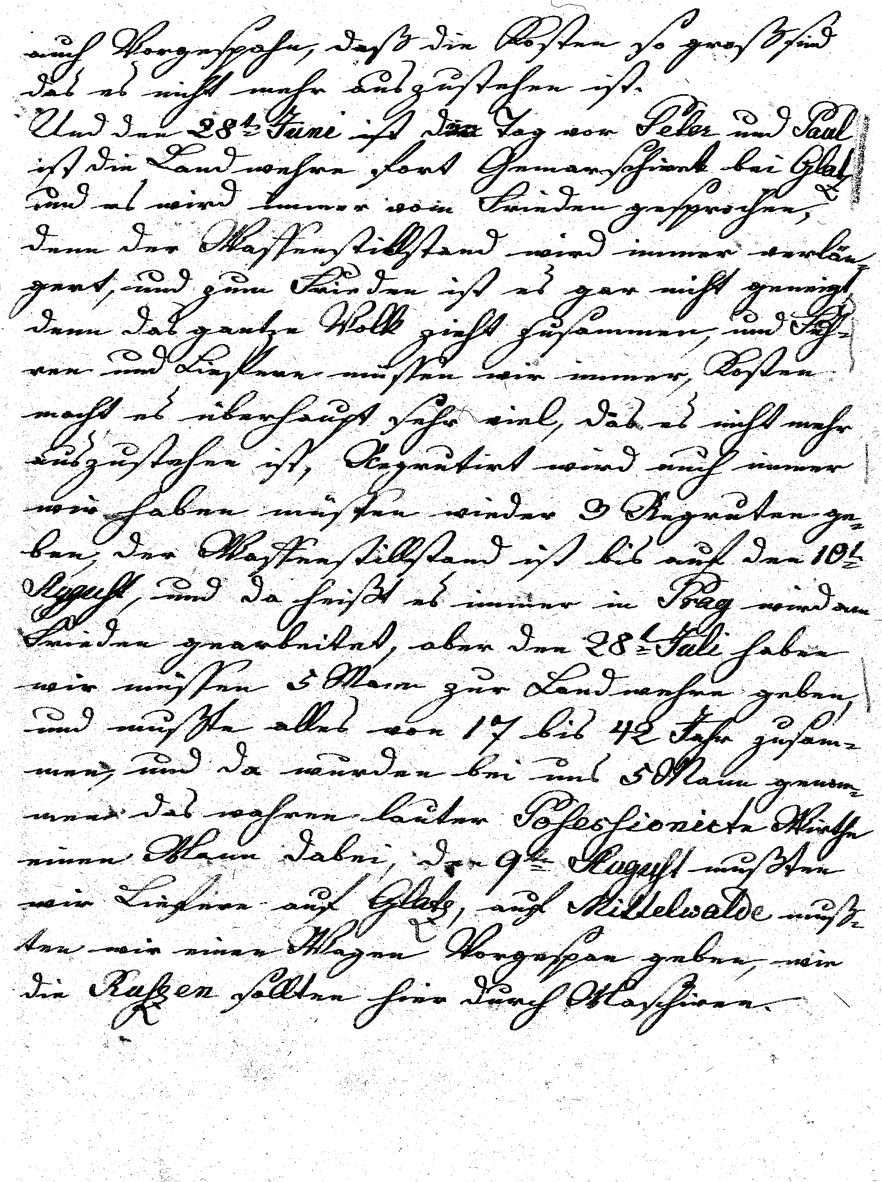 auch Vorgespahn, daß die Kosten so groß sind
das es nicht mehr auszustehen ist.
Und den 28t Juni ist den Tag vor Peter und Paul
ist die Landwehre fort Gemarschirt bei Glatz
und es wird immer vom Frieden gesprochen,
denn der Waffenstillstand wird immer verlän-
gert, und zum Frieden ist es gar nicht geneigt,
denn das gantze Volk zieht zusammen, und Fuh-
ren und Liefern müssen wir immer, Kosten
macht es überhaupt sehr viel, das es nicht mehr
auszustehen ist, Regrutirt wird auch immer
wir haben müssen wieder 3 Regruten ge-
ben, der Waffenstillstand ist bis auf den 10t
August, und da heißt es immer in Prag wird am
Frieden gearbeitet, aber den 28t Juli haben
wir müssen 5 Mann zur Landwehre geben,
und mußte alles von 17 bis 42 Jahr zusam-
men, und da wurden bei uns 5 Mann genom-
men das wahren lauter Pofessionicte Wirthe
einen Mann dabei, den 9ten August mußten
wir Liefern auf Glatz, auf Mittelwalde muß-
ten wir einen Wagen Vorgespan geben, wie
die Rußzen sollten hier durch Maschiren.